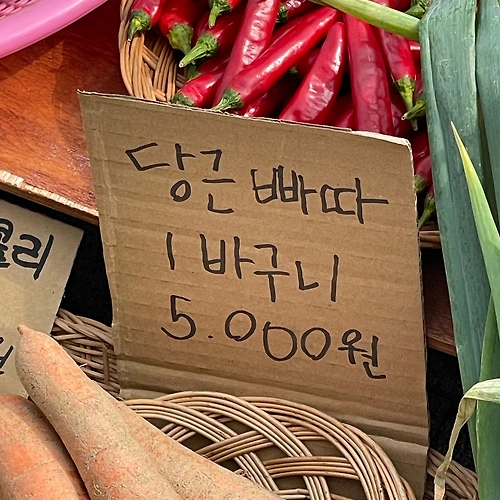 당근 빠따
1 바구니
5.000원
콜리